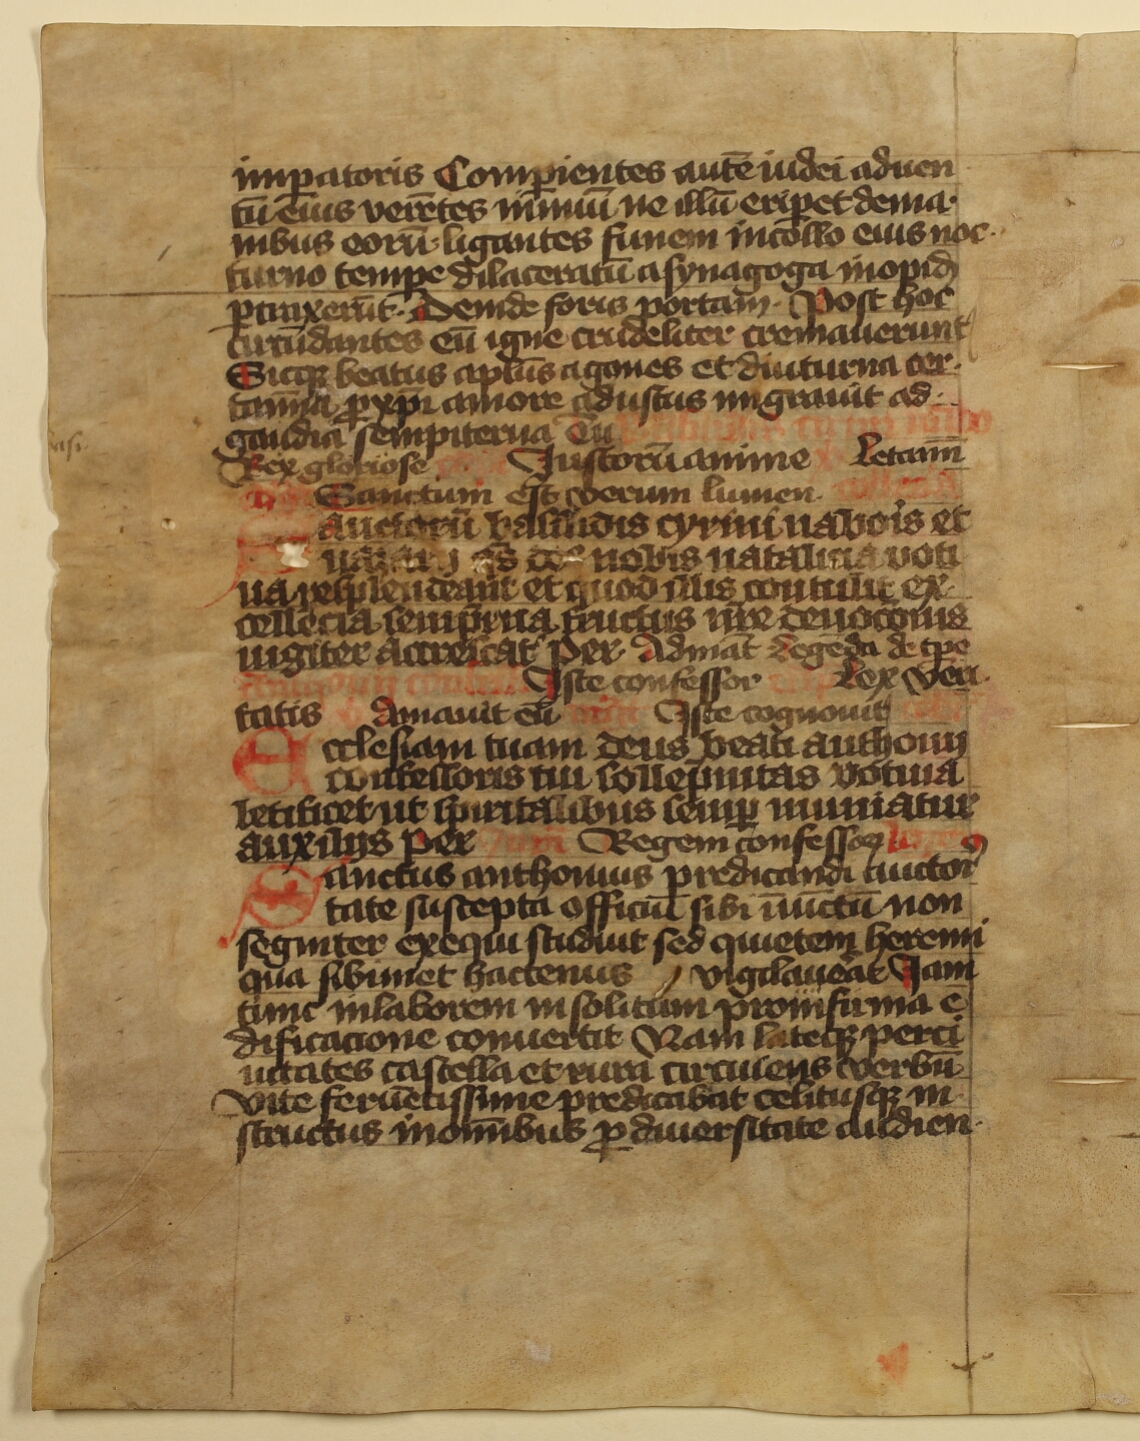 imp̄atoris Comp̄ientes autē iudei aduen
tū eius verētes nimiū ne illū erip̄et de ma·
nibus eorū· ligantes funem in collo eius noc·
turno tempe dilaceratū a synagoga in opidū
ptraxerūt· Deinde foris portam· Post hoc
circūdantes eū igne crudeliter cremauerunt
Sicq; beatus aplūs agones et diuturna cer·
tamīa p xpi amore adustus migrauit ad·
gaudia sempiterna Tu
Rex gloriose Iustorū anime Letamī
Sanctum est verum lumen·
anctorū basilidis cyrini nabois et
nazarij qs dn̄e nobis natalicia voti
ua resplendeant et quod illis contulit ex·
cellēcia sempit̄na fructus nr̄e deuocōnis
iugiter accrescat per· Ad mat̄ Legēda de tpe
Iste confessor Lex veri·
tatis Amauit eū Iste cognouit
Ecclesiam tuam deus beati anthonij
confessoris tui sollēpnitas votiua
letificet ut sp̄iritalibus semp̄ muniatur
auxilijs per Regem confessor
Sanctus anthonius predicandi auctor
tate suscepta officiū sibi iniūctū non
segniter exequi studuit sed quietem heremi
qua sibimet hactenus vigilauerat Iam
tunc in laborem in solitum proinfirma ē
dificacione conuertit Nam lateq; per ci
uitates castella et rura circuiens verbū
vite feruētissime predicabat celitusq; in·
structus in omībus p diuersitate audien·